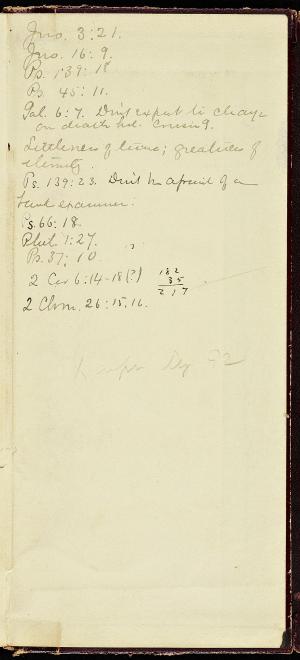 Jno. 3:21.
Jno. 16:9.
Ps. 139:18
Ps. 45:11.
Gal. 6:7. Don't expect to change
on death bed.
Littleness of time; greatness of
eternity.
Ps. 139:23. Don't be afraid of a
examiner.
Ps. 66:18.
Phil. 1:27.
Ps. 37:10.
2 Cor 6:14-18(?) 182
35
217
2 Chron. 26:15,16.